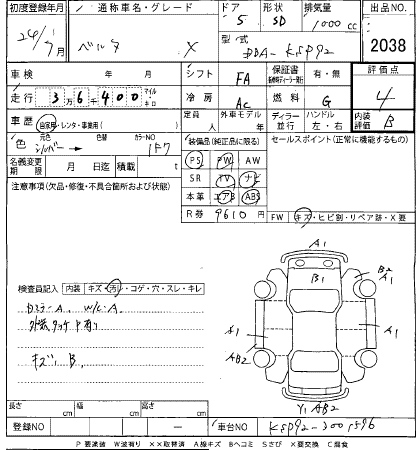 初度登録年月 通称車名・グレード ドア 形状 排気量 出品NO.
24年 7月 ベルタ X 5 SD 1000 cc 2038
型式 DBA-KSP92
車検 年 月 シフト FA 保証書 有・無 評価点
走行 3 6 4 0 0 マイル キロ 冷房 AC 燃料 G 4
車歴 自家用・レンタ・事業用( ) 定員 人 外車モデル 年 ディーラー 並行 ハンドル 左・右 内装評価 B
色 元色 シルバー カラーNO 1F7 装備品(純正品に限る) セールスポイント(正常に機能するもの)
PS PW AW
名義変更期限 月 日迄 積載 t SR TV ナビ
注意事項(欠品・修復・不具合箇所および状態) 本革 エアB ABS
R券 9610 円 FW キズ・ヒビ割・リペア跡・X要
A1
B1
B2
A1
検査員記入 内装 キズ・汚レ・コゲ・穴・スレ・キレ
A W/C-A
A1 A1
AB2
キズ、B
Y1 AB2
長さ cm 幅 cm 高さ cm
登録NO — 車台NO KSP92-3001596
P要塗装 W波有り XX取替済 A線キズ Bヘコミ Sさび X要交換 C腐食